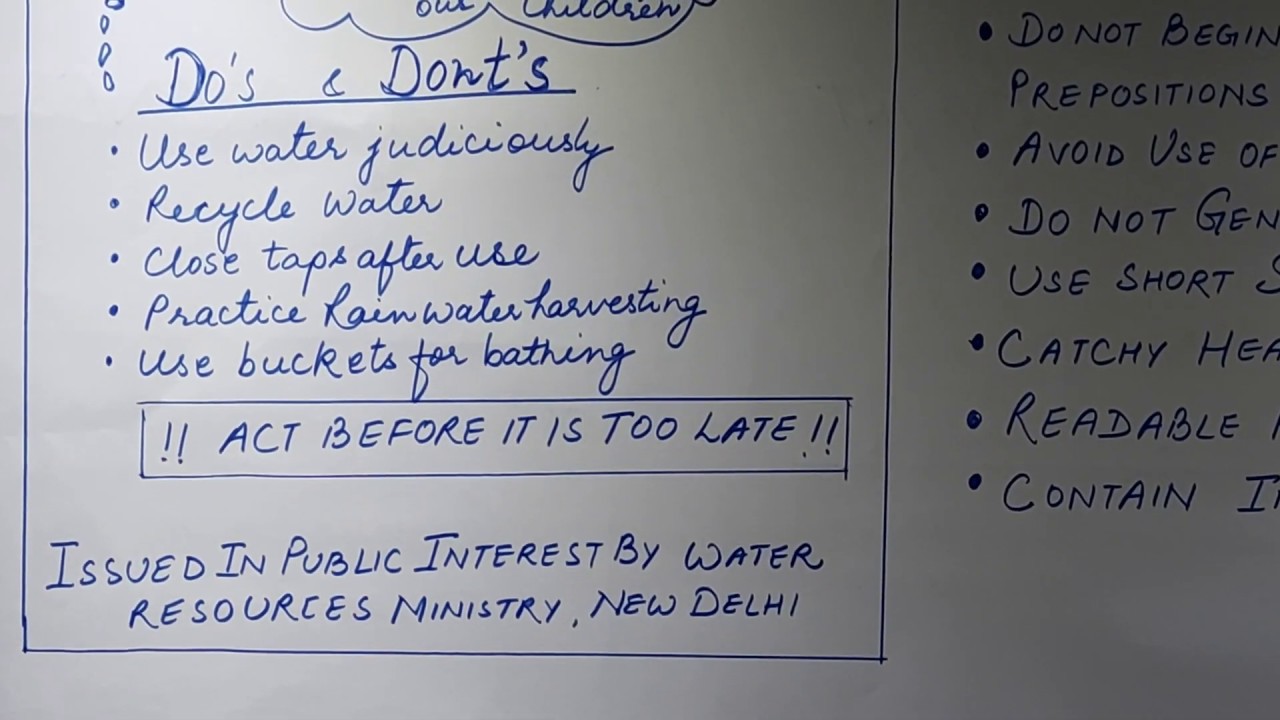 our Children
Do's & Dont's
• Use water judiciously
• Recycle water
• Close taps after use
• Practice Rain water harvesting
• Use buckets for bathing
!! ACT BEFORE IT IS TOO LATE !!
ISSUED IN PUBLIC INTEREST BY WATER
RESOURCES MINISTRY, NEW DELHI
• DO NOT BEGIN
PREPOSITIONS
• AVOID USE OF
• DO NOT GEN
• USE SHORT S
• CATCHY HEA
• READABLE
• CONTAIN